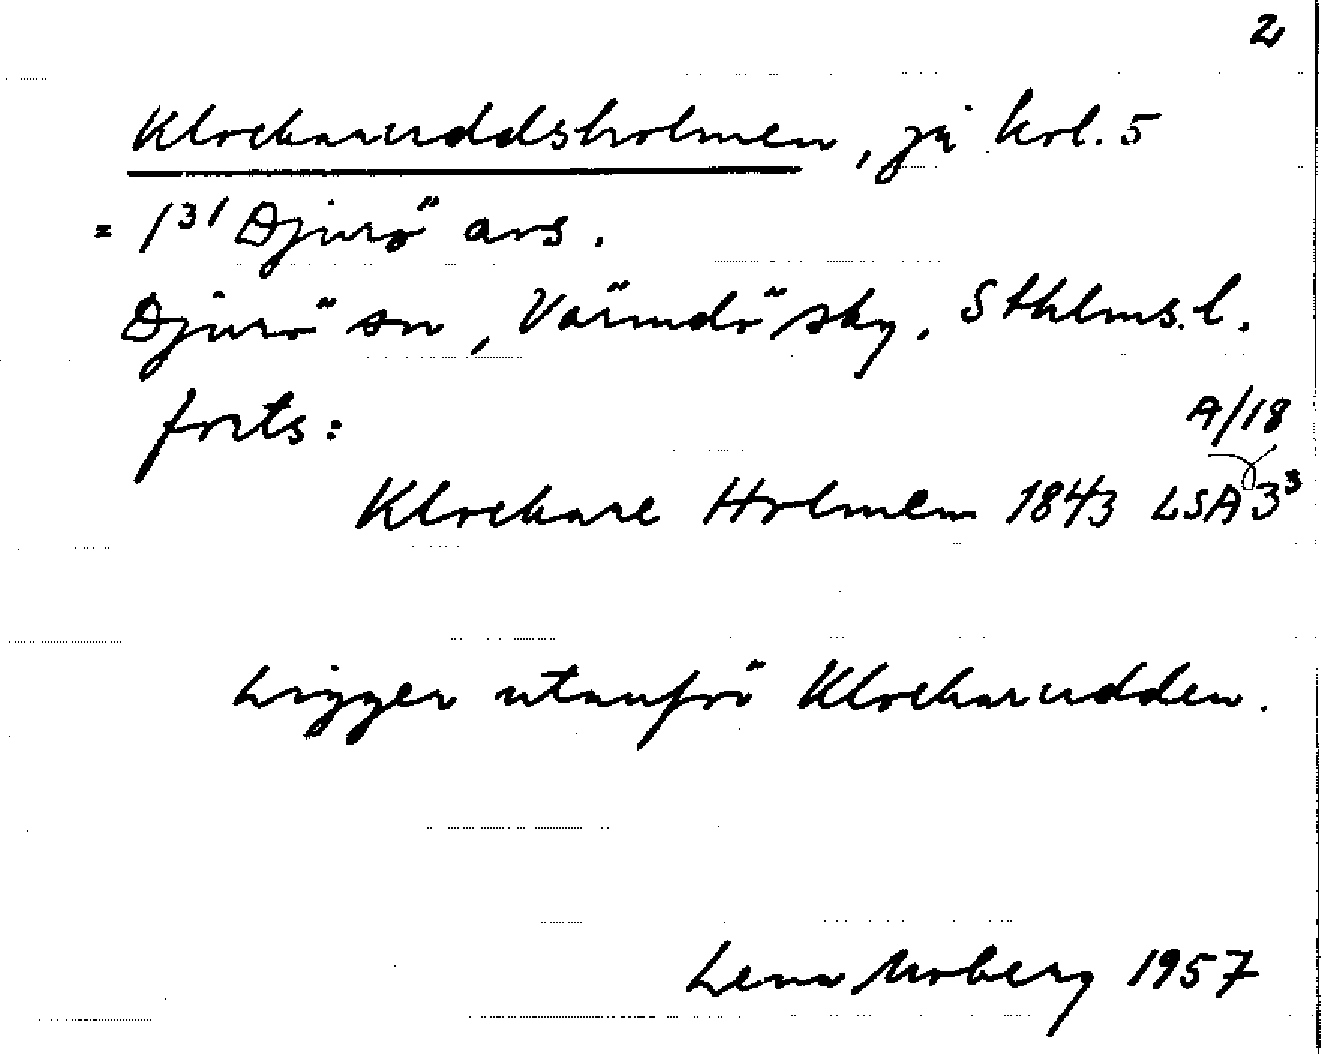 2
Klockaruddsholmen, på kol. 5
= 1³¹ Djurö avs.
Djurö sn, Värmdö sky, Sthlms. l.
forts:
A/18
Klockare Holmen 1843 LSA 3³
Ligger utanför Klockarudden.
Lena Moberg 1957